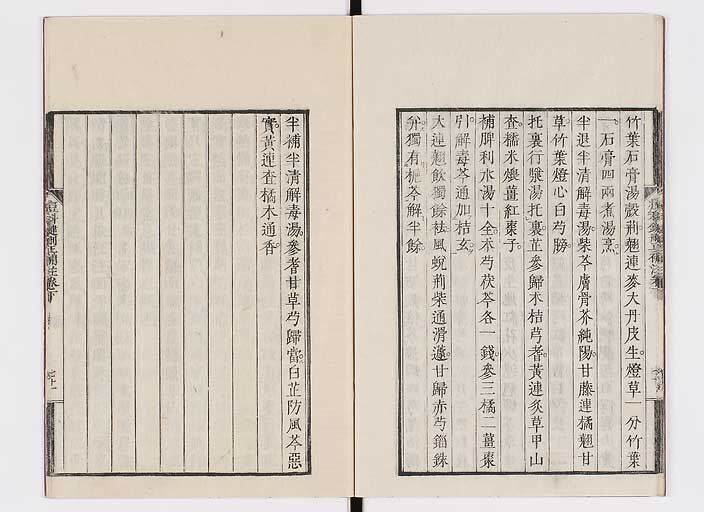 竹葉石膏湯殼荊翹連麥大丹皮生燈草一分竹葉
一石膏四兩煮湯烹
半退半清解毒湯柴芩膚骨芥純陽甘藤連橘翹甘
草竹葉燈心白芍勝
托裏行漿湯托裏芷參歸木桔芎耆黃連炙草甲山
查糯米煥薑紅棗子
補脾利水湯十全朮芍茯苓各一錢參三橘二薑棗
引解毒芩通加桔玄
大連翹飲獨餘袪風蛻荊柴通滑蘧甘歸赤芍錙銖
分獨有梔芩解半餘
半補半清解毒湯參耆甘草芍歸當白芷防風芩惡
實黃連查橘木通香
痘科鍵刪正補注卷下